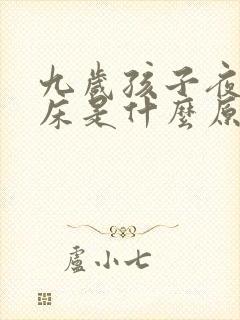 九歲孩子夜
床是什麼原
盧小七